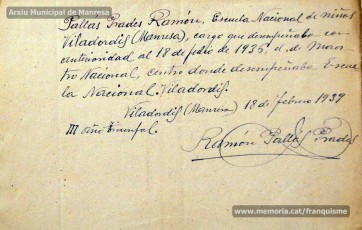 Arxiu Municipal de Manresa
Pallás Prades Ramón, Escuela Nacional de niños
Viladordis (Manresa), cargo que desempeñaba con
anterioridad al 18 de julio de 1936 el de Maes-
tro Nacional, centro donde desempeñaba Escue
la Nacional. Viladordis.
Viladordis (Manresa) 18 de febrero 1939
III Año Triunfal.
Ramón Pallás Prades
www.memoria.cat/franquisme